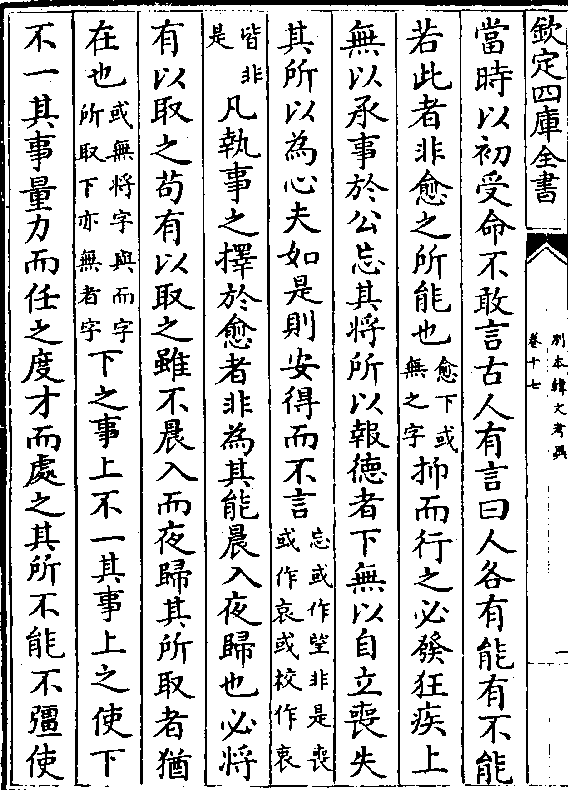 欽定四庫全書
別本韓文考異
卷十七
一
當時以初受命不敢言古人有言曰人各有能有不能
若此者非愈之所能也愈下或無之字抑而行之必發狂疾上
無以承事於公忘其將所以報德者下無以自立喪失
其所以為心夫如是則安得而不言忘或作𫝶非是喪或作哀或校作衷
皆非是凡執事之擇於愈者非為其能晨入夜歸也必將
有以取之苟有以取之雖不晨入而夜歸其所取者猶
在也或無將字與而字所取下亦無者字下之事上不一其事上之使下
不一其事量力而任之度才而處之其所不能不彊使